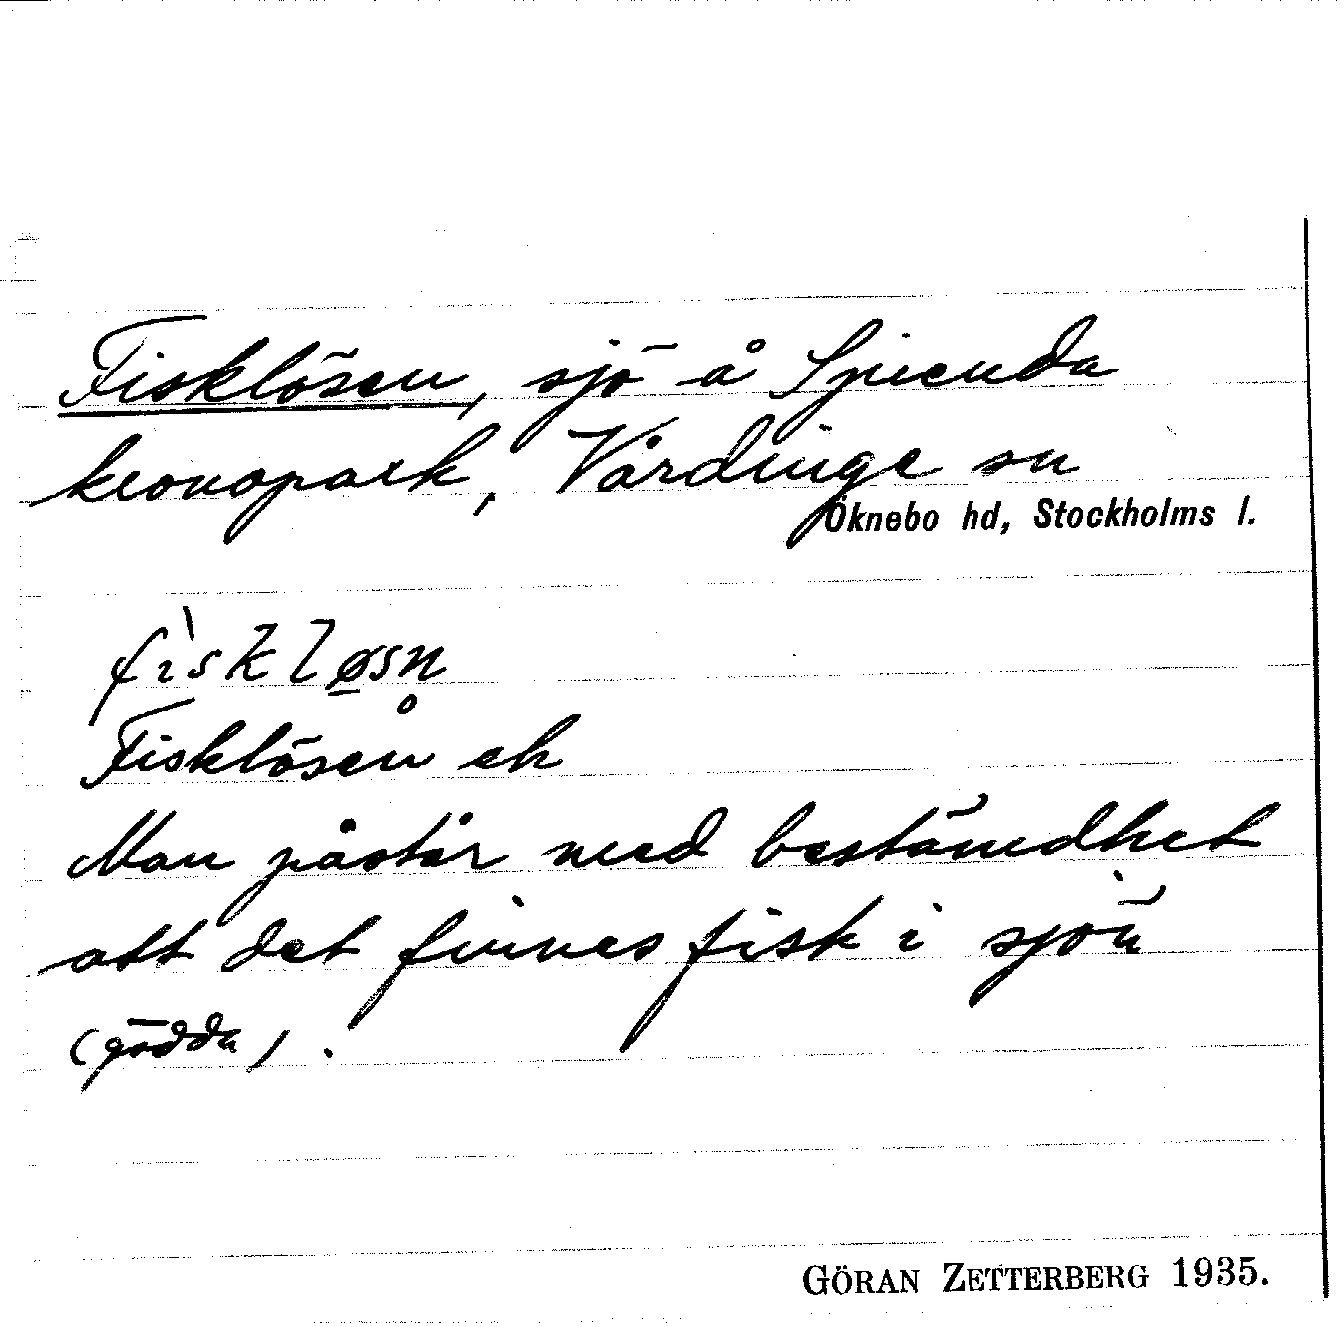 Fisklösen, sjö å Spienda
kronopark, Vårdinge sn
Öknebo hd, Stockholms l.
fìskløsn̥
Fisklösen ek
Man påstår med bestämdhet
att det finnes fisk i sjön
(gädda).
GÖRAN ZETTERBERG 1935.